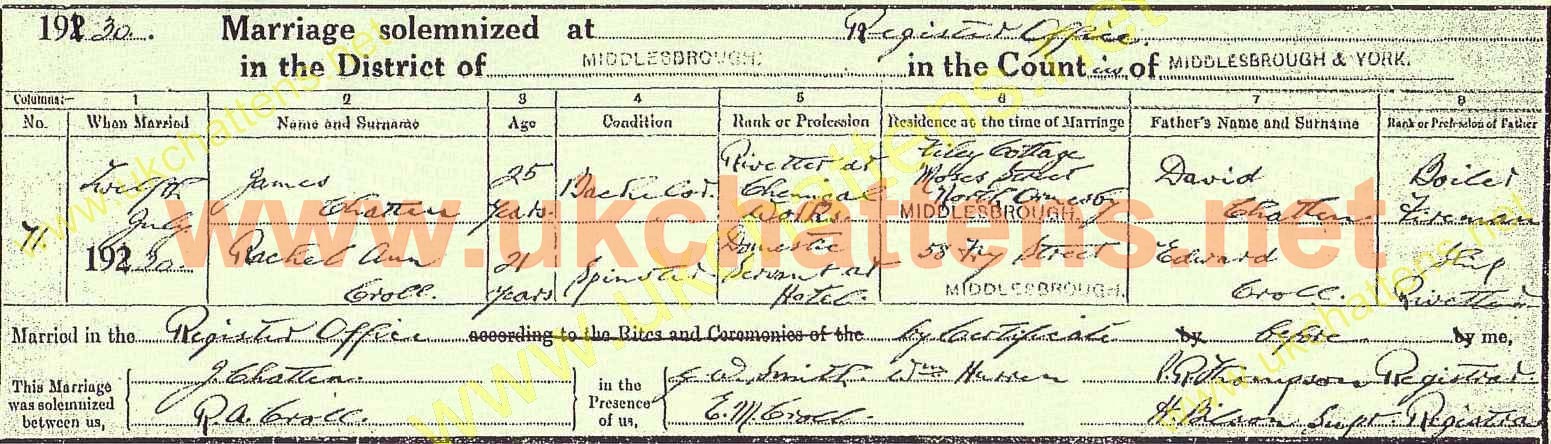 1930. Marriage solemnized at Register Office.
in the District of MIDDLESBROUGH. in the Counties of MIDDLESBROUGH & YORK.
Columns:— 1 2 3 4 5 6 7 8
No. When Married Name and Surname Age Condition Rank or Profession Residence at the time of Marriage Father's Name and Surname Rank or Profession of Father
71 Twelfth July 1930. James Chatten 25 years. Bachelor. Rivetter at Chemical Works. Filey Cottage Moses Street North Ormesby MIDDLESBROUGH. David Chatten Boiler Fireman
Rachel Ann Croll. 21 years Spinster Domestic Servant at Hotel. 58 Fry Street MIDDLESBROUGH. Edward Croll. Ship Rivetter
Married in the Register Office according to the Rites and Ceremonies of the by Certificate by before by me,
This Marriage was solemnized between us, J. Chatten. R. A. Croll. in the Presence of us, Smith Wm E. M. Croll. Thompson Registrar Supt Registrar
www.ukchattens.net
www.ukchattens.net
www.ukchattens.net
www.ukchattens.net
www.ukchattens.net